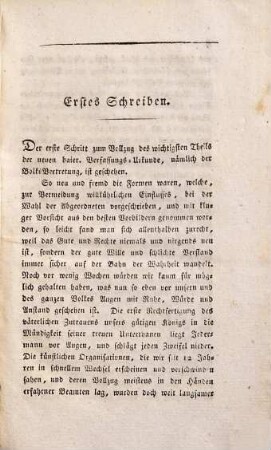 Erstes Schreiben.
Der erste Schritt zum Vollzug des wichtigsten Theils
der neuen baier. Verfassungs-Urkunde, nämlich der
Volks-Vertretung, ist geschehen.
So neu und fremd die Formen waren, welche,
zur Vermeidung willkührlichen Einflusses, bei der
Wahl der Abgeordneten vorgeschrieben, und mit klu-
ger Vorsicht aus den besten Vorbildern genommen wor-
den, so leicht fand man sich allenthalben zurecht,
weil das Gute und Rechte niemals und nirgends neu
ist, sondern der gute Wille und schlichte Verstand
immer sicher auf der Bahn der Wahrheit wandelt.
Noch vor wenig Wochen würden wir kaum für mög-
lich gehalten haben, was nun so eben vor unsern und
des ganzen Volkes Augen mit Ruhe, Würde und
Anstand geschehen ist. Die erste Rechtfertigung des
väterlichen Zutrauens unsers gütigen Königs in die
Mündigkeit seiner treuen Unterthanen liegt Jeder-
mann vor Augen, und schlägt jeden Zweifel nieder.
Die künstlichen Organisationen, die wir seit 12 Jah-
ren in schnellem Wechsel erscheinen und verschwinden
sahen, und deren Vollzug meistens in den Händen
erfahrner Beamten lag, wurden doch weit langsamer